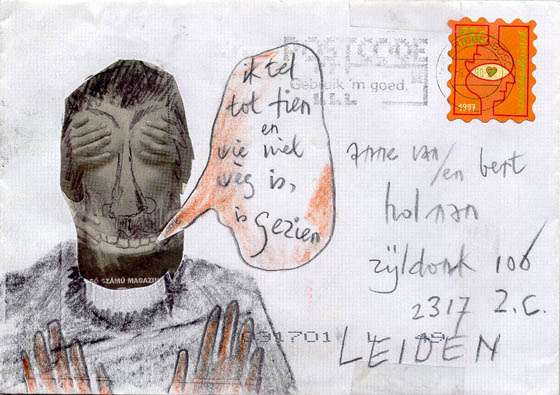 POSTCODE
Gebruik 'm goed.
1997
ik tel
tot tien
en
wie niet
weg is,
is gezien
Anne van/en bert
holman
zijldonk 106
2317 Z.C.
LEIDEN
Ó SZÁMÚ MAGAZIN
091701 L 49